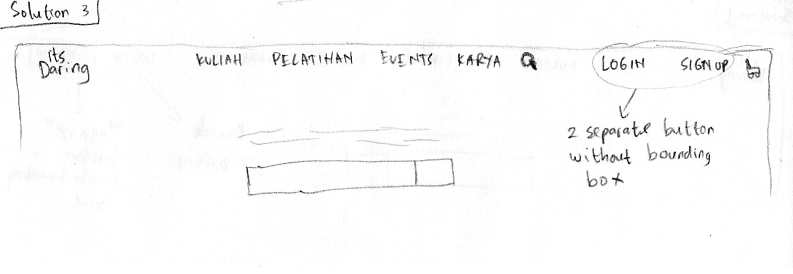 Solution 3
Its.
Daring
KULIAH PELATIHAN EVENTS KARYA LOGIN SIGNUP
2 separate button
without bounding
box